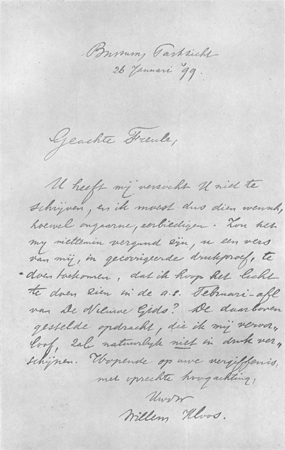 Bussum, Parkzicht
26 Januari '99.
Geachte Freule,
U heeft mij verzocht U niet te
schrijven, en ik moest dus dien wensch,
hoewel ongaarne, eerbiedigen. Zou het
mij niettemin vergund zijn, u een vers
van mij, in gecorrigeerde drukproef, te
doen toekomen, dat ik hoop het licht
te doen zien in de a.s. Februari-afl.
van De Nieuwe Gids? De daarboven
gestelde opdracht, die ik mij veroor-
loof, zal natuurlijk niet in druk ver-
schijnen. Hopende op uwe vergiffenis,
met oprechte hoogachting,
Uwdw
Willem Kloos.